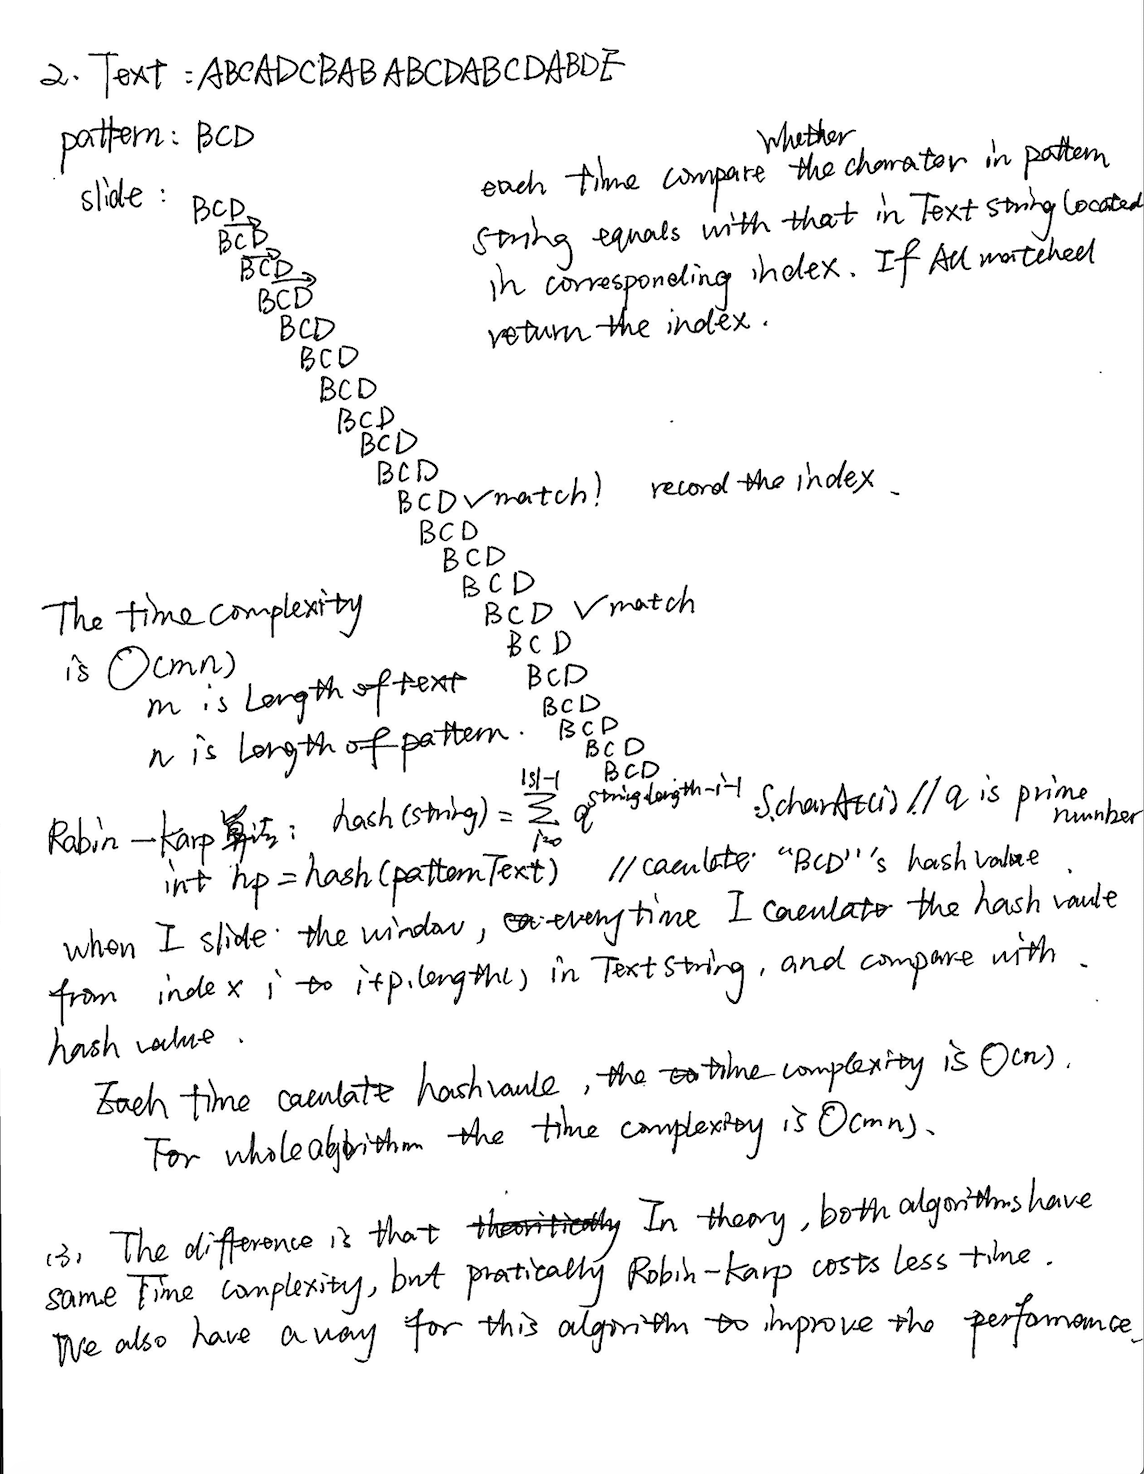 2. Text : ABCADCBAB ABCDABCDABDE
pattern: BCD
slide :
BCD
BCD
BCD
BCD
BCD
BCD
BCD
BCD
BCD
BCD
BCD √ match! record the index.
BCD
BCD
BCD
BCD √ match
BCD
BCD
BCD
BCD
BCD
BCD
whether
each time compare the charater in pattern
string equals with that in Text string located
in corresponding index. If All matched
return the index.
The time complexity
is O(mn)
m is Length of text
n is Length of pattern.
Rabin-Karp 算法: hash(string) = |s|-1 Σ i=0 q^string.length-i-1 S.charAt(i) // q is prime number
int hp = hash(patternText) // caculate "BCD"'s hash value.
when I slide the window, every time I caculate the hash vaule
from index i to i+p.length() in Text string, and compare with
hash value.
Each time caculate hash vaule, the time complexity is O(n).
For whole algorithm the time complexity is O(mn).
(3) The difference is that theoritically In theory, both algorithms have
same Time complexity, but pratically Robin-Karp costs less time.
We also have a way for this algorithm to improve the perfomance.